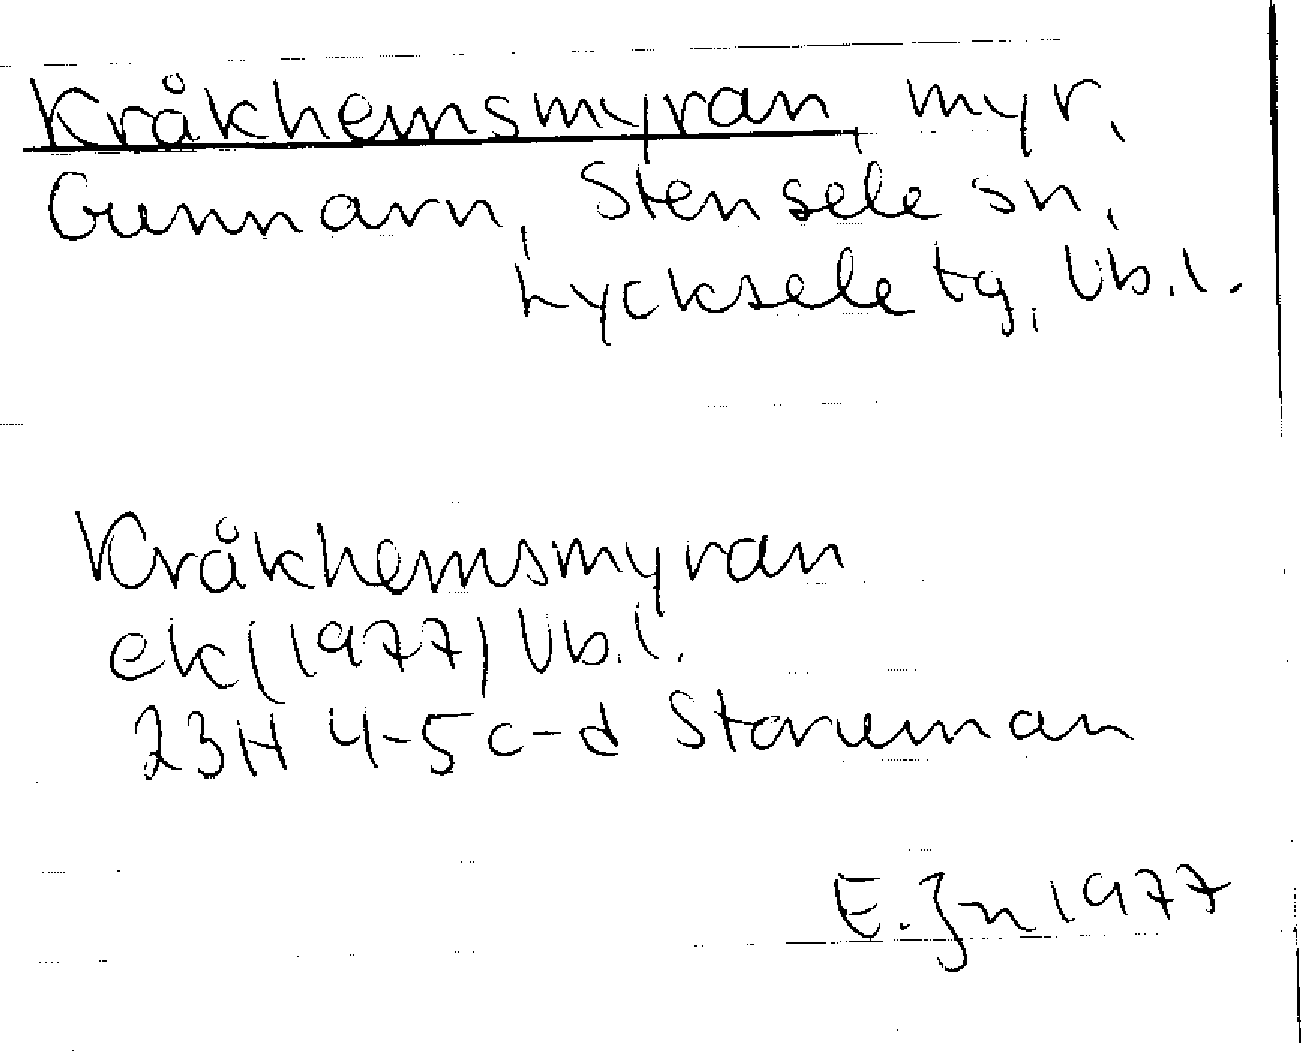 Kråkhemsmyran, myr,
Gunnarn, Stensele sn,
Lycksele tg, Vb.l.
Kråkhemsmyran
ek (1977) Vb.l.
23H 4-5c-d Storuman
E. Jn 1977